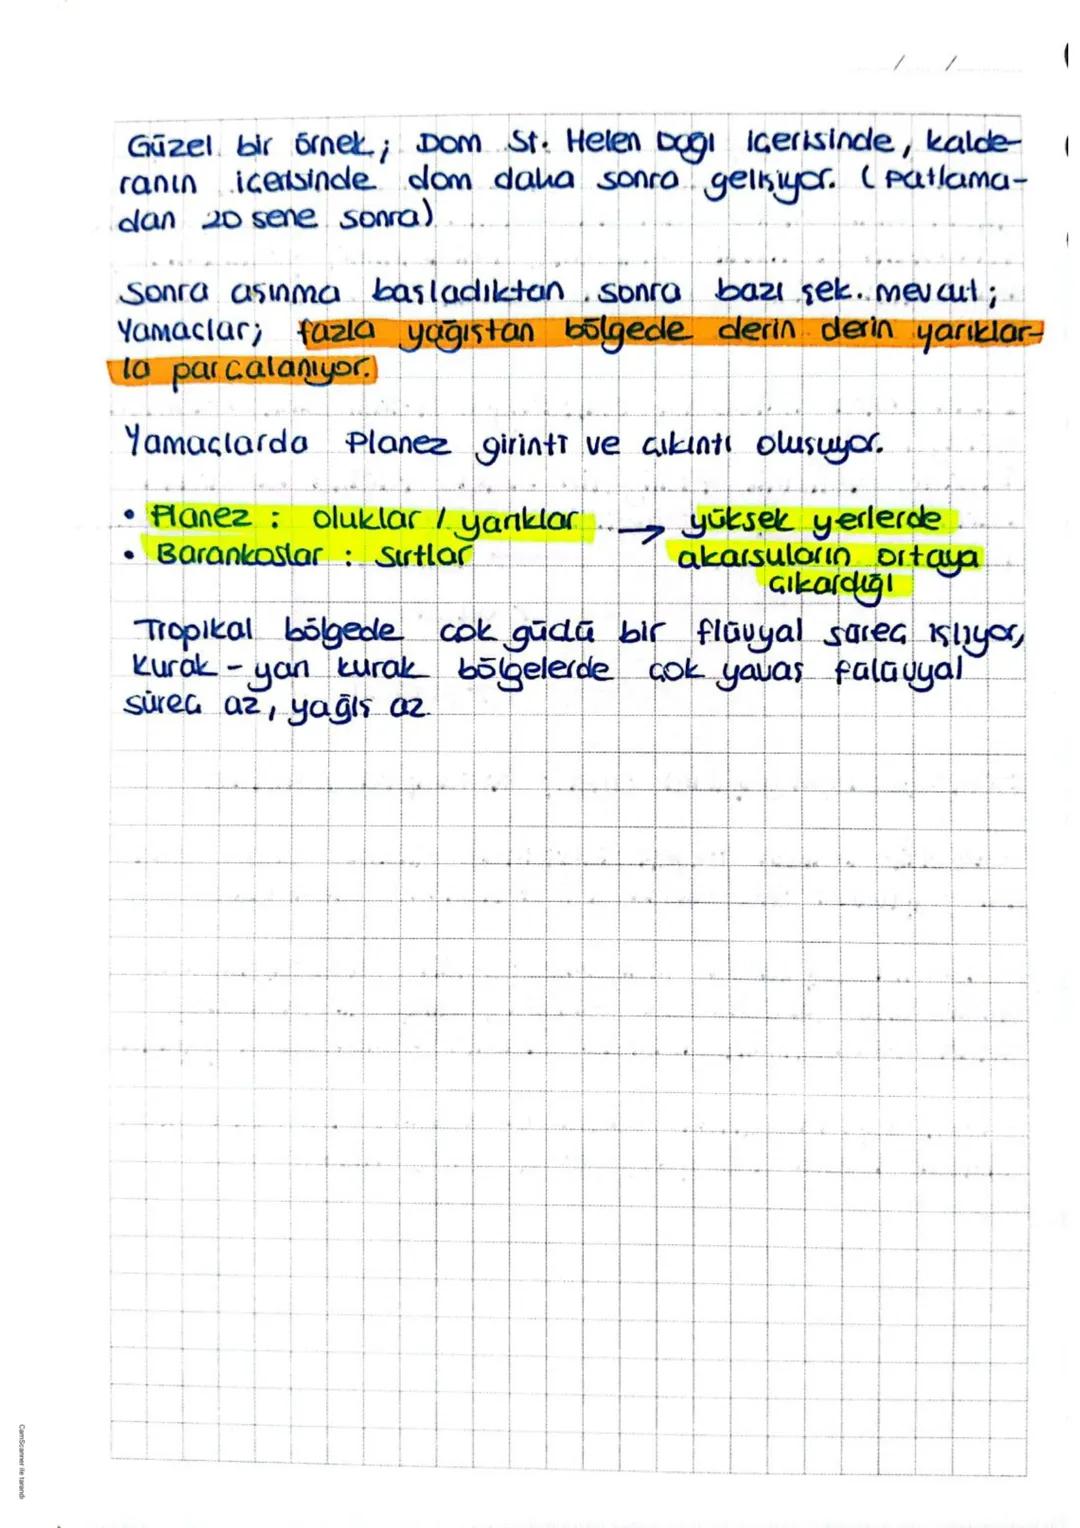 / /
Güzel bir örnek; Dom St. Helen Dağı içerisinde, kalde-
ranın içerisinde dom daha sonra gelişiyor. (Patlama-
dan 20 sene sonra)
Sonra aşınma başladıktan sonra bazı şek. mevcut;
Yamaçlar; fazla yağıştan bölgede derin derin yarıklar-
la parçalanıyor.
Yamaçlarda Planez girinti ve çıkıntı oluşuyor.
• Planez : oluklar / yarıklar → yüksek yerlerde
• Barankoslar : sırtlar akarsuların ortaya
çıkardığı
Tropikal bölgede çok güçlü bir flüvyal süreç işliyor,
Kurak - yarı kurak bölgelerde çok yavaş fülüvyal
süreç az, yağış az.
CamScanner ile tarandı